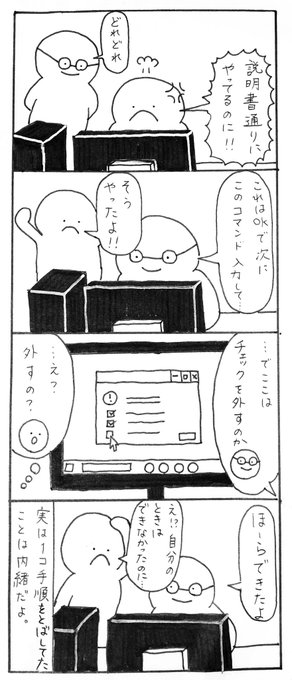 どれどれ
説明書通りに
やってるのに!!
これはOKで次に
このコマンド入力して…
そう
やったよ!!
…でここは
チェックを外すのか
…え?
外すの?
ほーらできたよ
え!?自分の
ときは
できなかったのに
実は1コ手順をとばしてた
ことは内緒だよ。